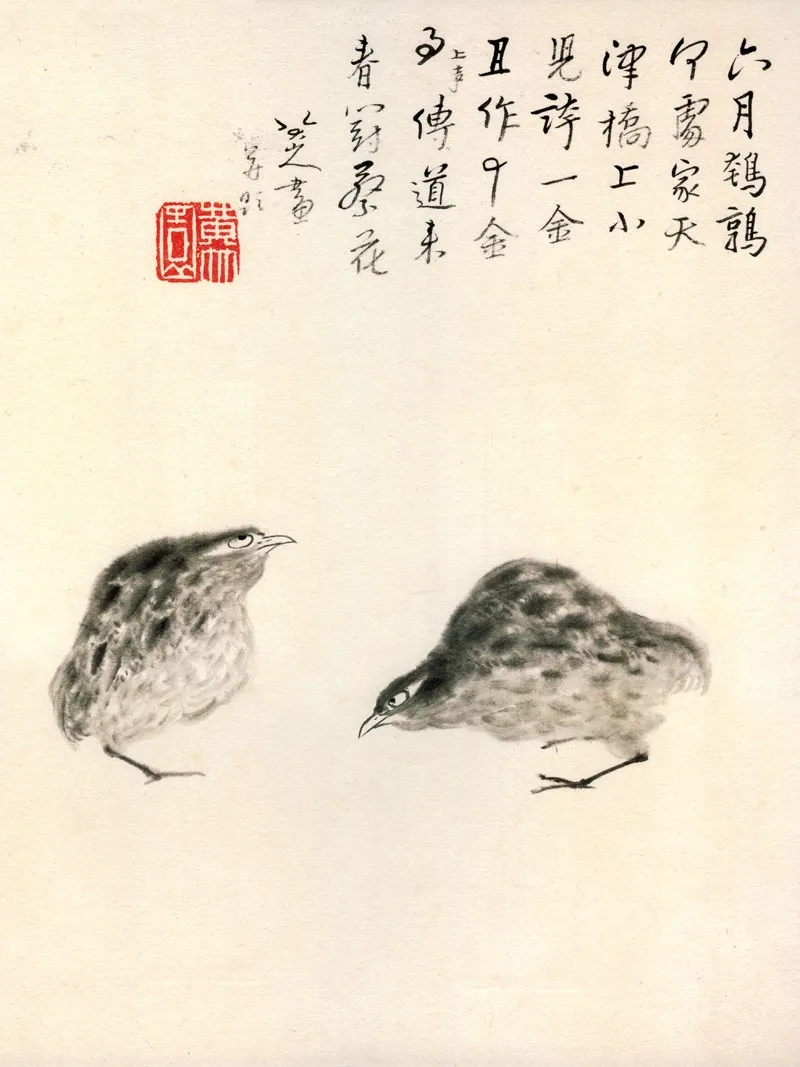 六月鵪鶉
何處家天
津橋上小
兒誇一金
且作十金
事上声傳道來
春對蔡花
八大山人畫
并題